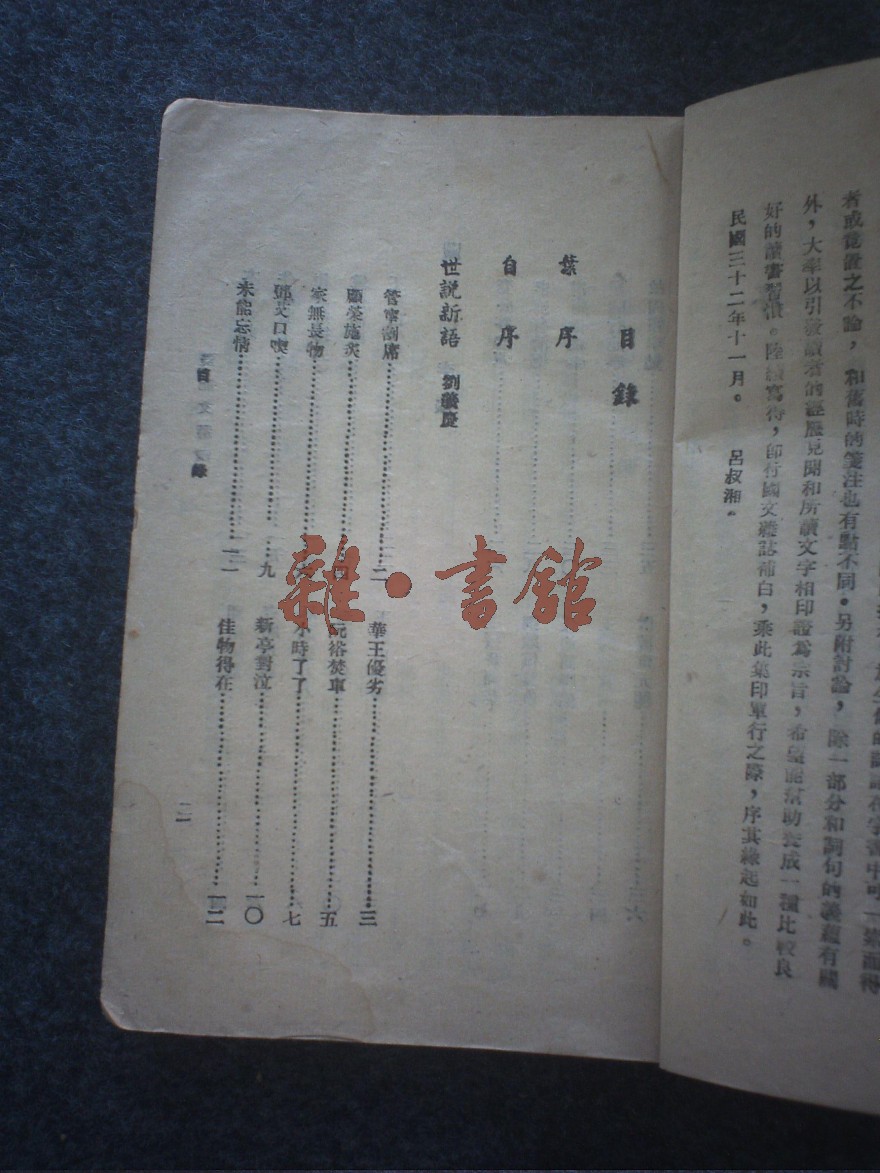 者或覺置之不論，和舊時的箋注也有點不同。另附討論，除一部分和詞句的義蘊有關
外，大率以引發讀者的經歷見聞和所讀文字相印證爲宗旨，希望能幫助養成一種比較良
好的讀書習慣。陸續寫得，卽付國文雜誌補白，乘此集印單行之際，序其緣起如此。
民國三十二年十一月。　呂叔湘。
目錄
葉序
自序
世說新語　劉義慶
管寧割席…………二
華王優劣…………三
顧榮施炙…………四
阮裕焚車…………五
家無長物…………六
小時了了…………七
鄧艾口喫…………九
新亭對泣…………一〇
未能忘情…………一一
佳物得在…………一二
目錄
一
雜·書館